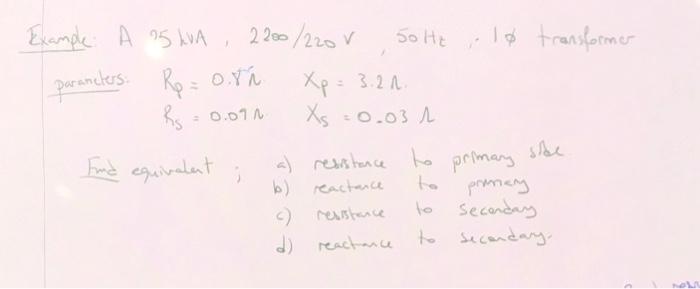 Example: A 25 kVA, 2200/220 V, 50 Hz, 1ϕ transformer
parameters: Rp = 0.8 Ω Xp = 3.2 Ω.
Rs = 0.09 Ω Xs = 0.03 Ω
Find equivalent ; a) resistance to primary side
b) reactance to primary
c) resistance to secondary
d) reactance to secondary.